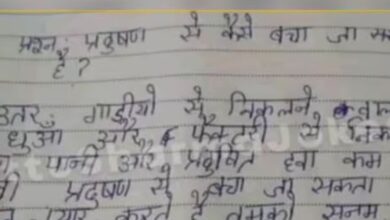 प्रश्न: प्रदुषण से कैसे बचा जा
है?
उत्तर: गाडीयो से निकलने
धुआँ और फैक्टरी से
पानी और प्रदुषित हवा कम
प्रदुषण से बचा जा सकता
करते है तुमको सनम